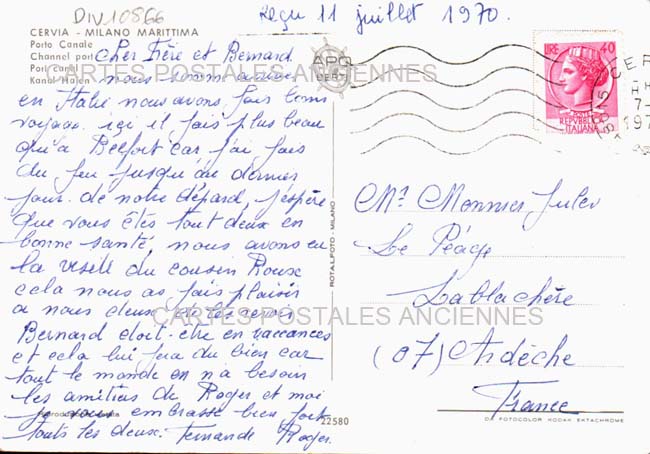 DIV10866
Reçu 11 juillet 1970.
CERVIA - MILANO MARITTIMA
Porto Canale
Channel port
Port canal
Kanal Hafen
Cher Frère et Bernard
nous somm arrivés
en Italie nous avons fais bons
voyage. içi il fais plus beau
qu'a Belfort car j'ai fais
du feu jusqu'au dernier
jour. de notre départ, j'espère
que vous êtes tout deux en
bonne santé, nous avons eu
la visite du cousin Roux
cela nous as fais plaisir
a nous deux de les revoir
Bernard doit-être en vaccances
et cela lui fera du bien car
tout le monde en a besoin
les amitiés de Roger et moi
je vous embrasse bien fort
touts les deux. Fernande Roger.
CARTES POSTALES ANCIENNES
CARTES POSTALES ANCIENNES
ROTALFOTO - MILANO
22580
LIRE 40
POSTE
REPVBBLICA
ITALIANA
Mr. Monnier Jules
Le Péage
Lablachère
(07) Ardèche
France
DA FOTOCOLOR KODAK EKTACHROME